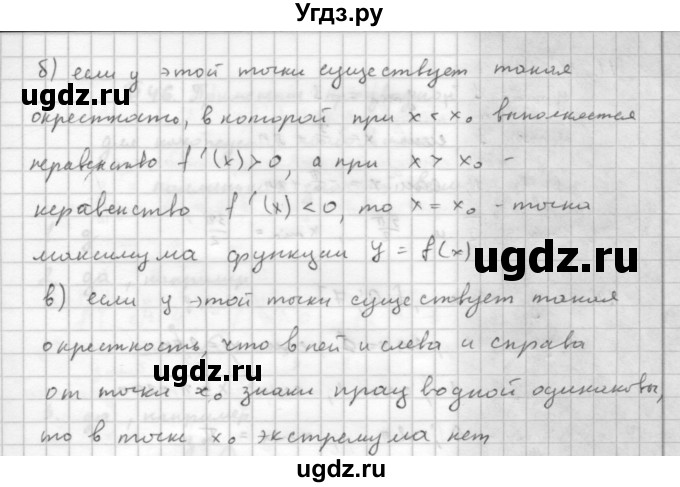 Угдз.ру
б) если у этой точки существует такая
окрестность, в которой при x < x₀ выполняется
неравенство f'(x) > 0, а при x > x₀ -
неравенство f'(x) < 0, то x = x₀ - точка
максимума функции y = f(x)
в) если у этой точки существует такая
окрестность, что в ней и слева и справа
от точки x₀ знаки производной одинаковы,
то в точке x₀ - экстремума нет
ugdz.ru
ugdz.ru
ugdz.ru
ugdz.ru